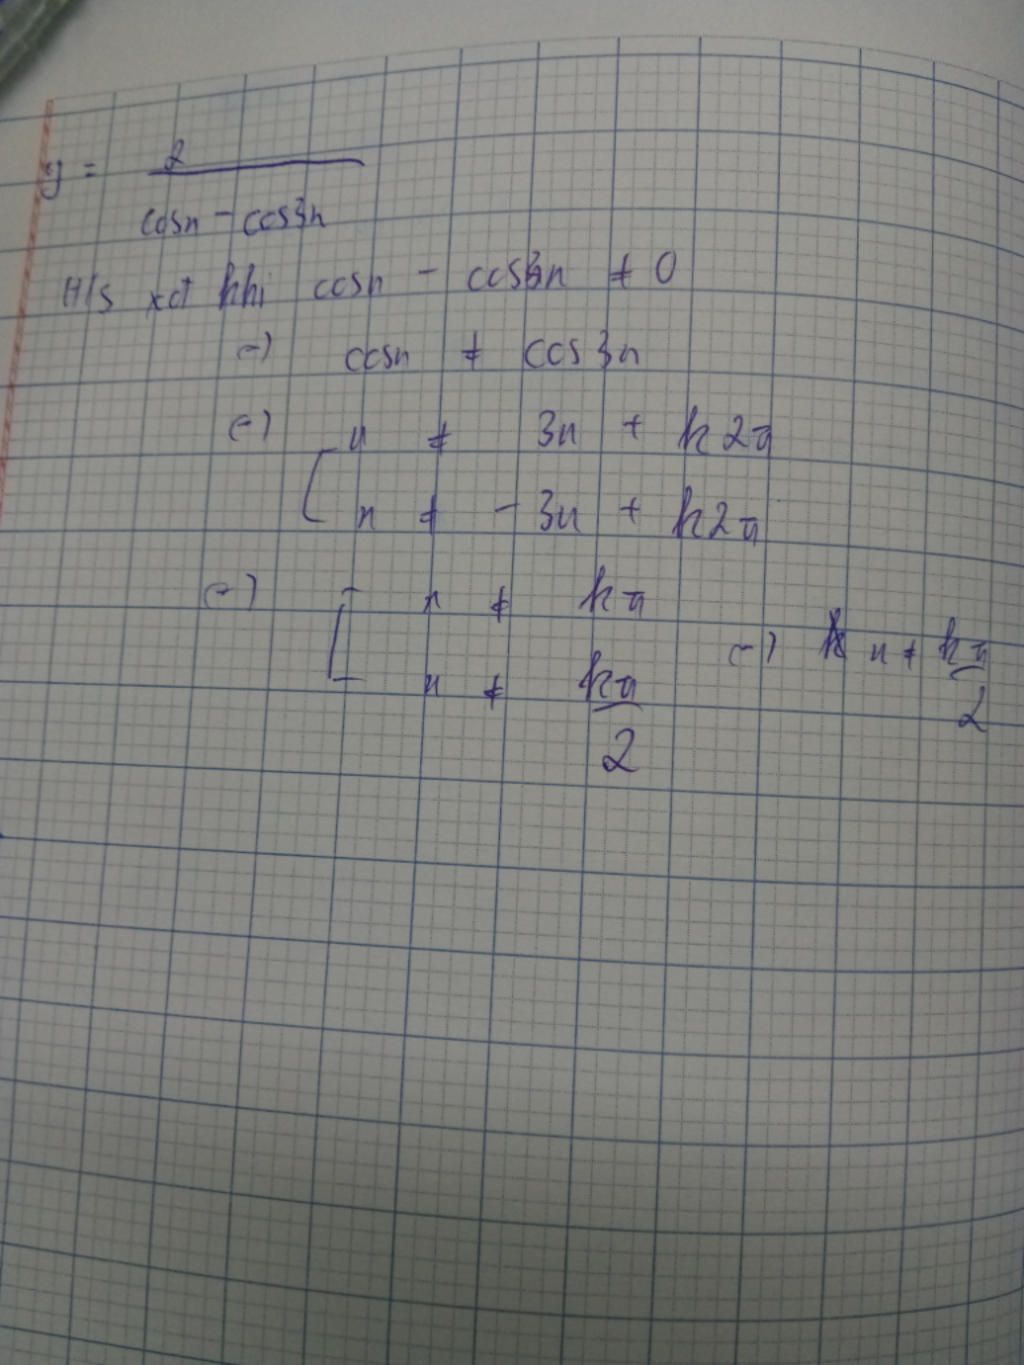 y = 2 / (cosx - cos3x)
H/s xđ khi cosx - cos3x ≠ 0
(=) cosx ≠ cos3x
(=) [ x ≠ 3x + k2π
x ≠ - 3x + k2π
(=) [ x ≠ kπ
x ≠ kπ/2 (=) x ≠ kπ/2